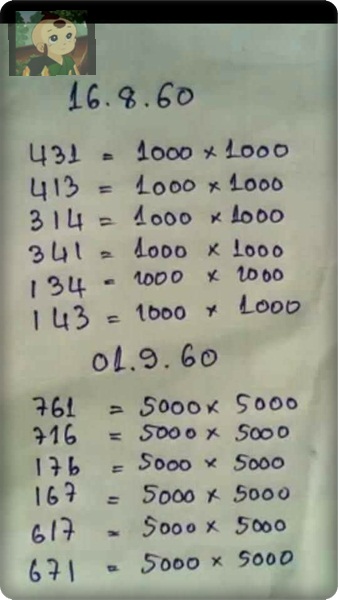 16.8.60
431 = 1000 × 1000
413 = 1000 × 1000
314 = 1000 × 1000
341 = 1000 × 1000
134 = 1000 × 1000
143 = 1000 × 1000
01.9.60
761 = 5000 × 5000
716 = 5000 × 5000
176 = 5000 × 5000
167 = 5000 × 5000
617 = 5000 × 5000
671 = 5000 × 5000